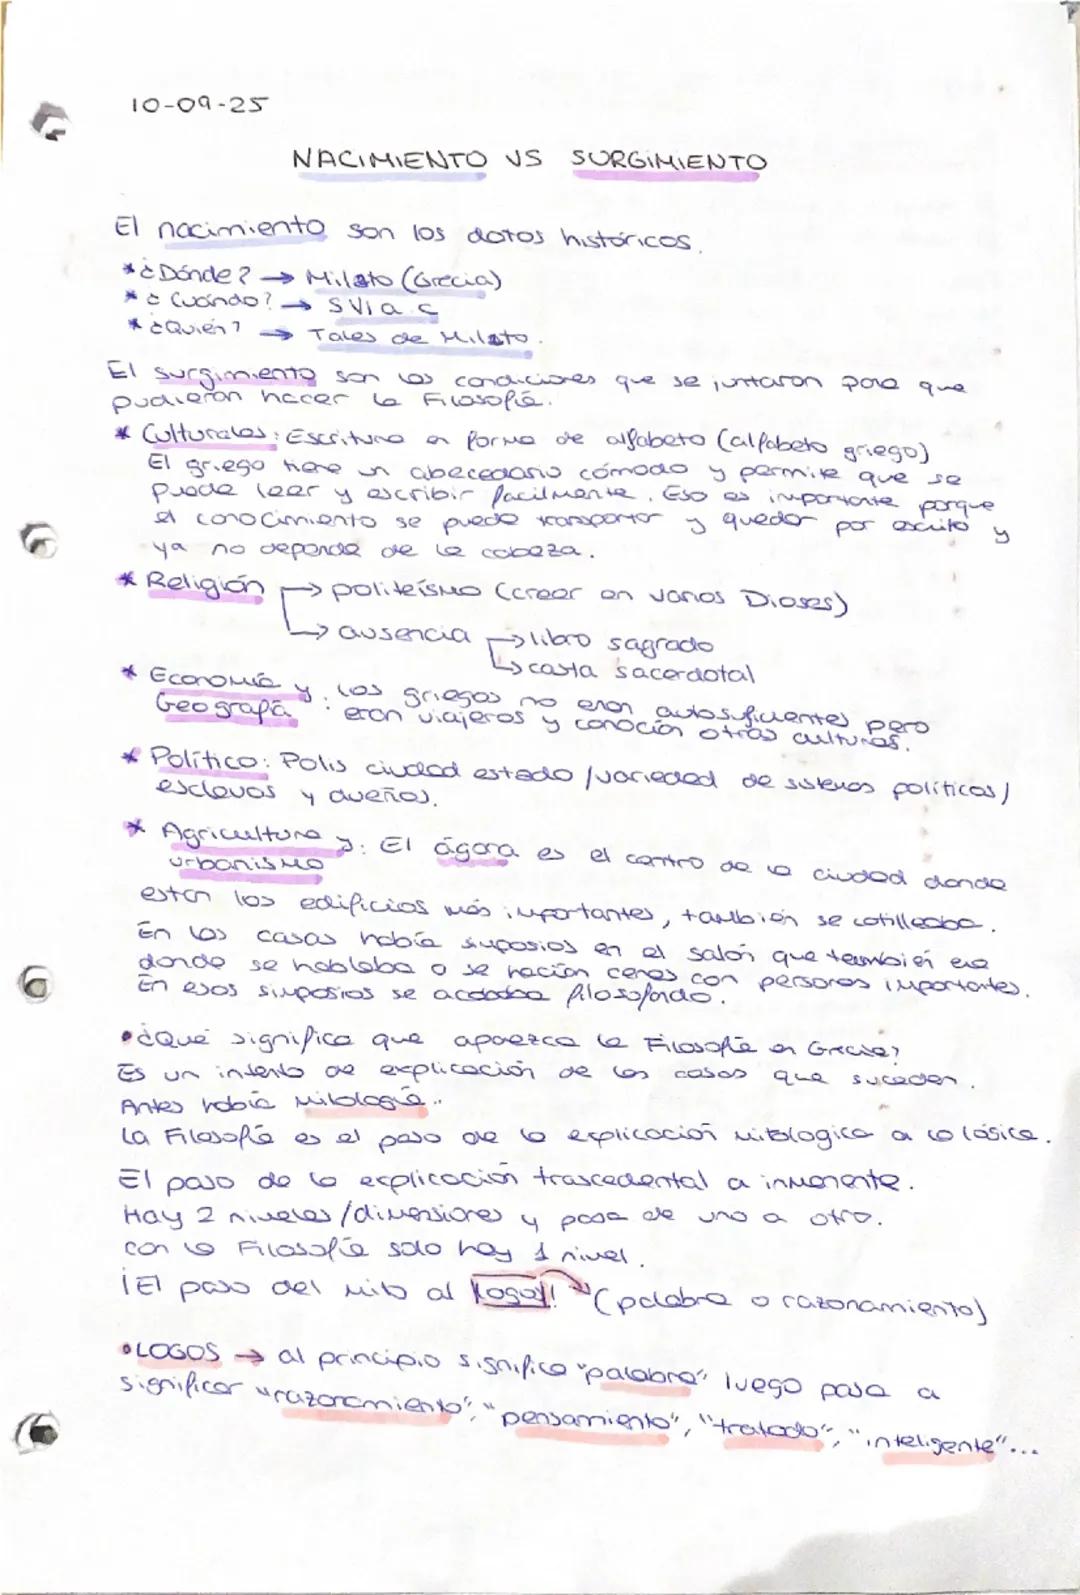 10-09-25
NACIMIENTO VS SURGIMIENTO
El nacimiento son los datos históricos.
* ¿Dónde? → Mileto (Grecia)
* ¿Cuándo? → S VI a.C
* ¿Quién? → Tales de Mileto.
El surgimiento son las condiciones que se juntaron para que
pudieran hacer la Filosofía.
* Culturales: Escritura en forma de alfabeto (alfabeto griego)
El griego tiene un abecedario cómodo y permite que se
pueda leer y escribir facilmente. Eso es importante porque
el conocimiento se puede transportar y quedar por escrito y
ya no depende de la cabeza.
* Religión → politeísmo (creer en varios Dioses)
→ ausencia → libro sagrado
→ casta sacerdotal
* Economía y : los griegos no eran autosuficientes pero
Geografía eran viajeros y conocían otras culturas.
* Político: Polis ciudad estado / variedad de sistemas políticos /
esclavos y dueños.
* Agricultura y : El ágora es el centro de la ciudad donde
urbanismo
estan los edificios más importantes, también se cotilleaba.
En las casas había simposios en el salón que también era
donde se hablaba o se hacían cenas con personas importantes.
En esos simposios se acababa filosofando.
• ¿Qué significa que aparezca la Filosofía en Grecia?
Es un intento de explicación de las cosas que suceden.
Antes había mitología..
La Filosofía es el paso de la explicación mitologica a la lósica.
El paso de la explicación trascedental a inmanente.
Hay 2 niveles/dimensiones y pasa de uno a otro.
con la Filosofía solo hay 1 nivel.
¡El paso del mito al logos! → (palabra o razonamiento)
• LOGOS → al principio significa "palabra", luego pasa a
significar "razonamiento", "pensamiento", "tratado", "inteligente"...